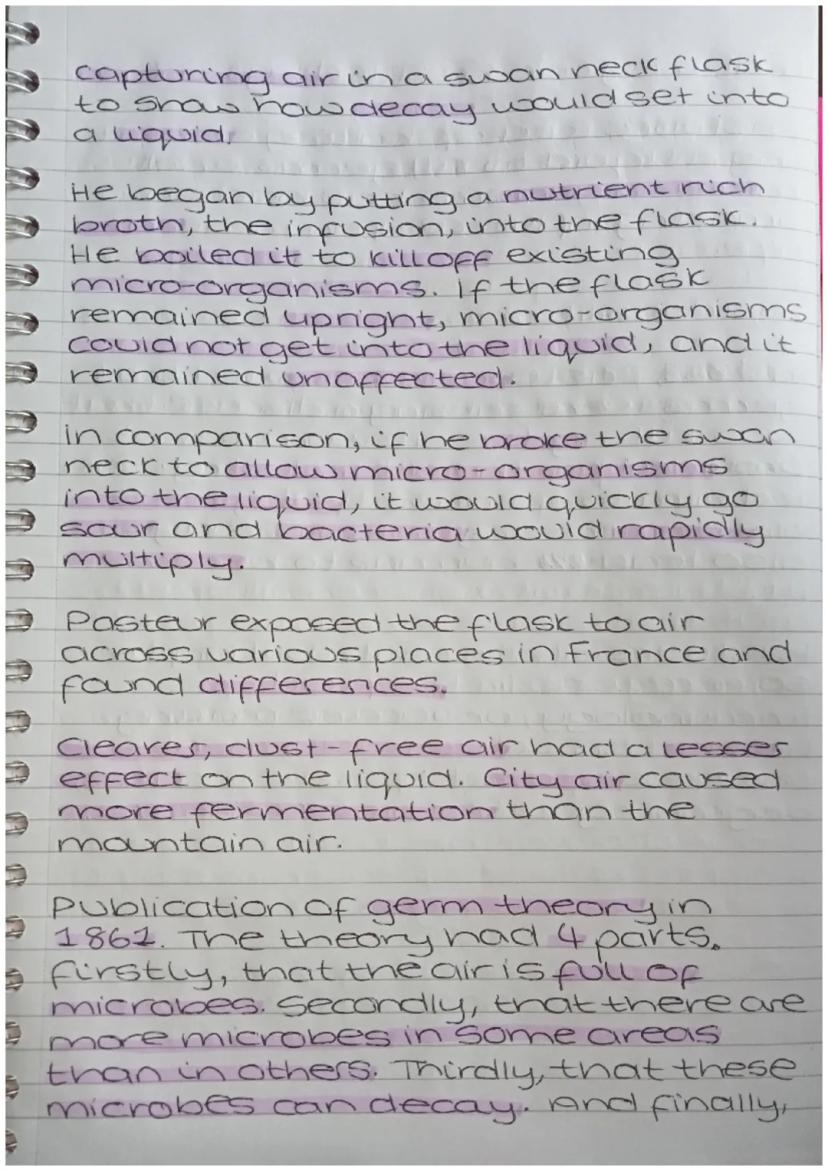 capturing air in a swan neck flask
to show how decay would set into
a liquid.
He began by putting a nutrient rich
broth, the infusion, into the flask.
He boiled it to kill off existing
micro-organisms. If the flask
remained upright, micro-organisms
could not get into the liquid, and it
remained unaffected.
in comparison, if he broke the swan
neck to allow micro-organisms
into the liquid, it would quickly go
sour and bacteria would rapidly
multiply.
Pasteur exposed the flask to air
across various places in France and
found differences.
Clearer, dust-free air had a lesser
effect on the liquid. City air caused
more fermentation than the
mountain air.
Publication of germ theory in
1861. The theory had 4 parts.
Firstly, that the air is full of
microbes. Secondly, that there are
more microbes in some areas
than in others. Thirdly, that these
microbes can decay. And finally,